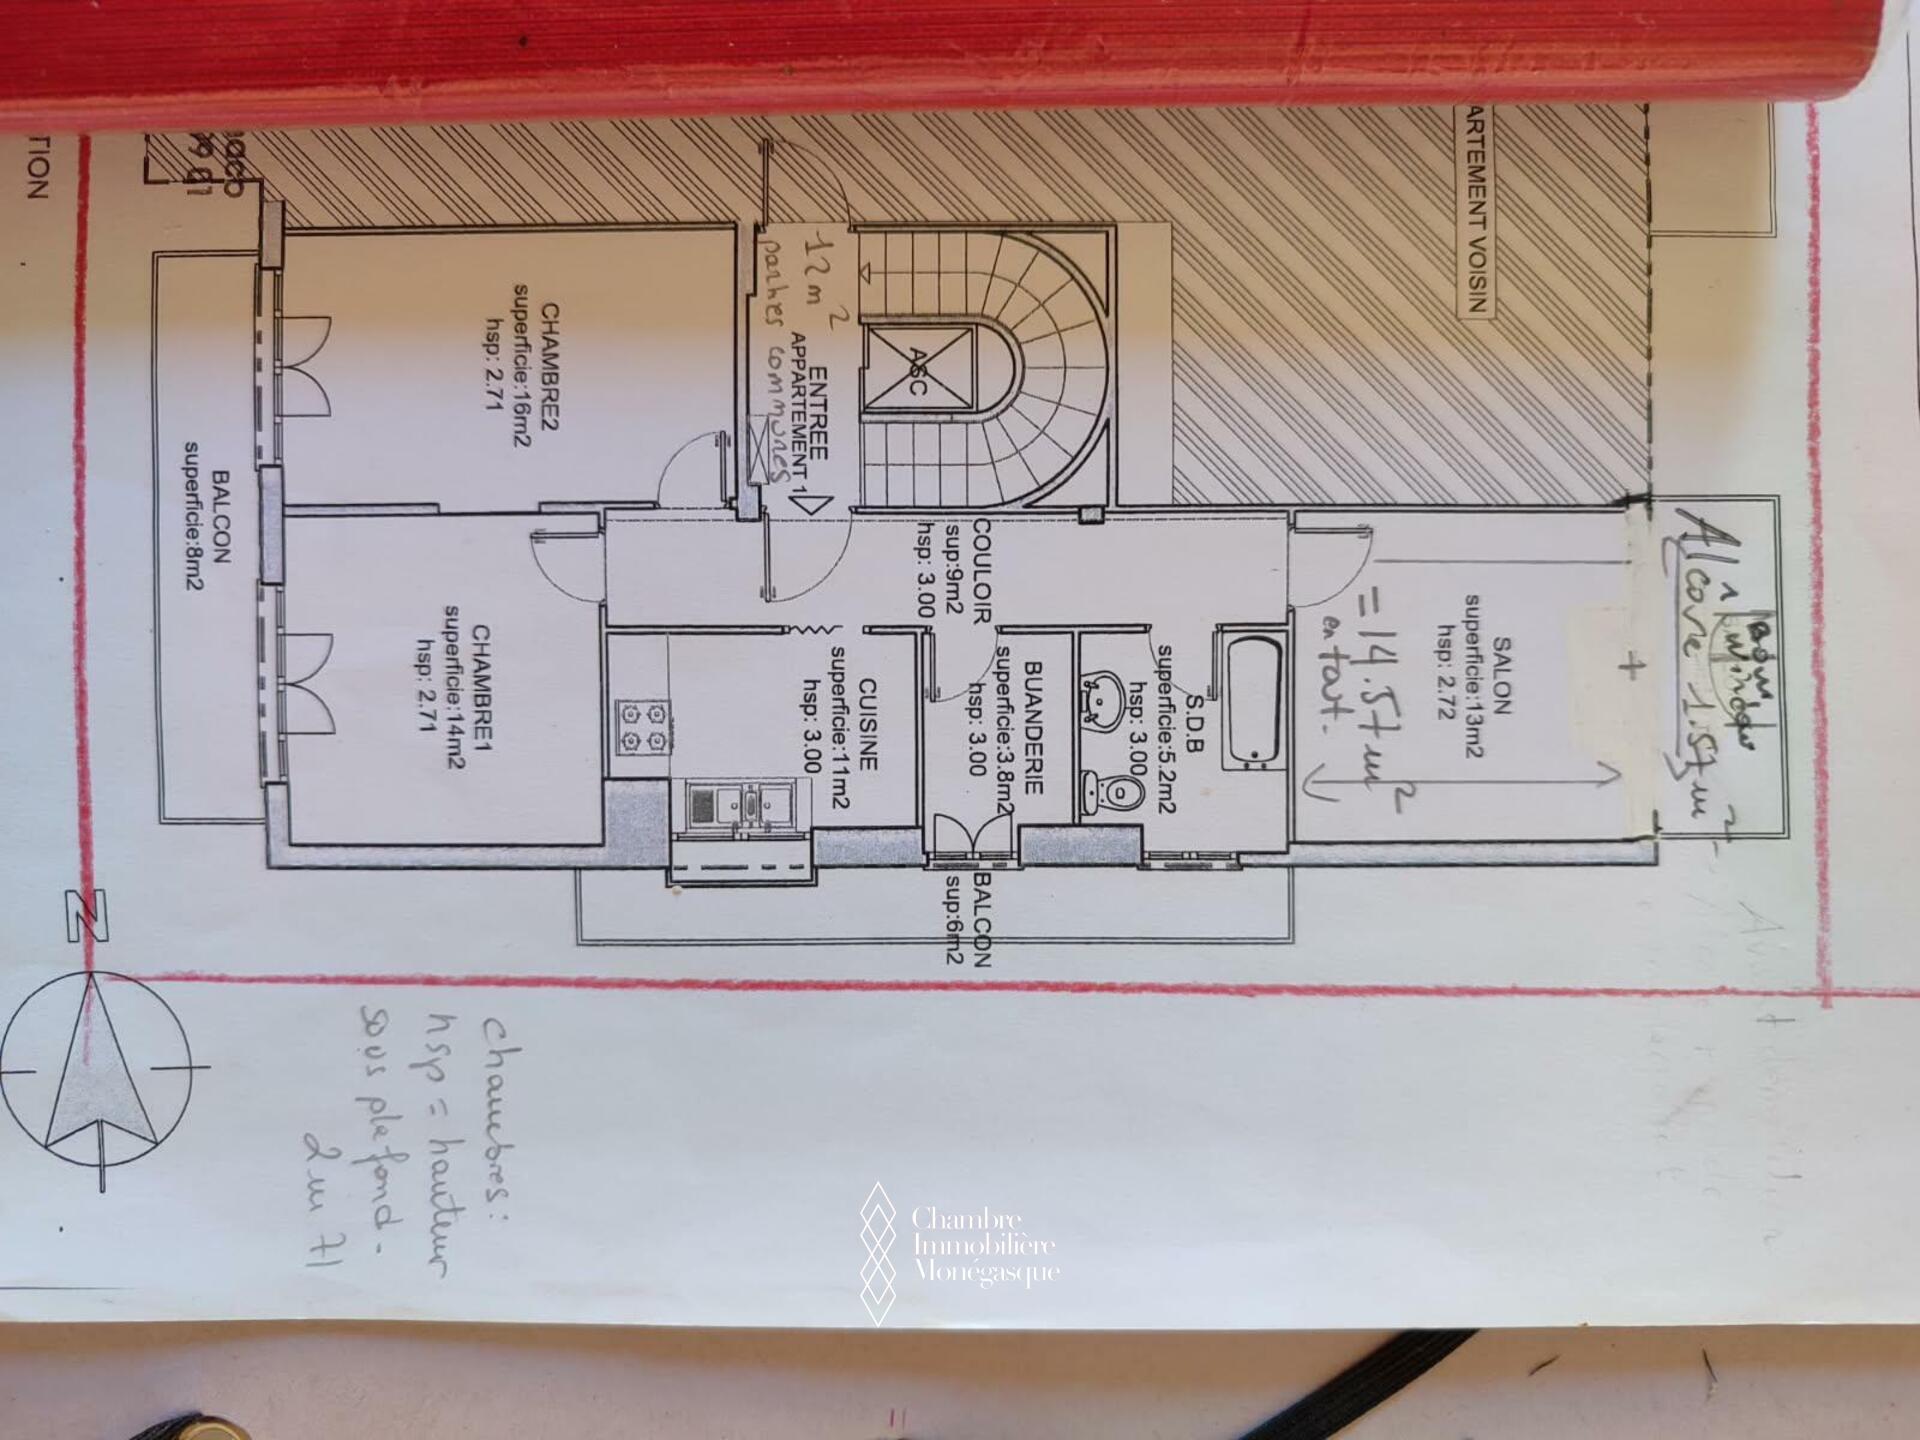 TION
aco
99 01
ARTEMENT VOISIN
12 m2
parties communes
ENTREE
APPARTEMENT 1
ASC
CHAMBRE2
superficie:16m2
hsp: 2.71
BALCON
superficie:8m2
CHAMBRE1
superficie:14m2
hsp: 2.71
COULOIR
sup:9m2
hsp: 3.00
CUISINE
superficie:11m2
hsp: 3.00
BUANDERIE
superficie:3.8m2
hsp: 3.00
S.D.B
superficie:5.2m2
hsp: 3.00
SALON
superficie:13m2
hsp: 2.72
+
= 14.57 m2
en tout.
bow window
Alcove 1.57 m2
BALCON
sup:6m2
N
chambres:
hsp = hauteur
sous plafond.
2 m 71
Chambre
Immobilière
Monégasque